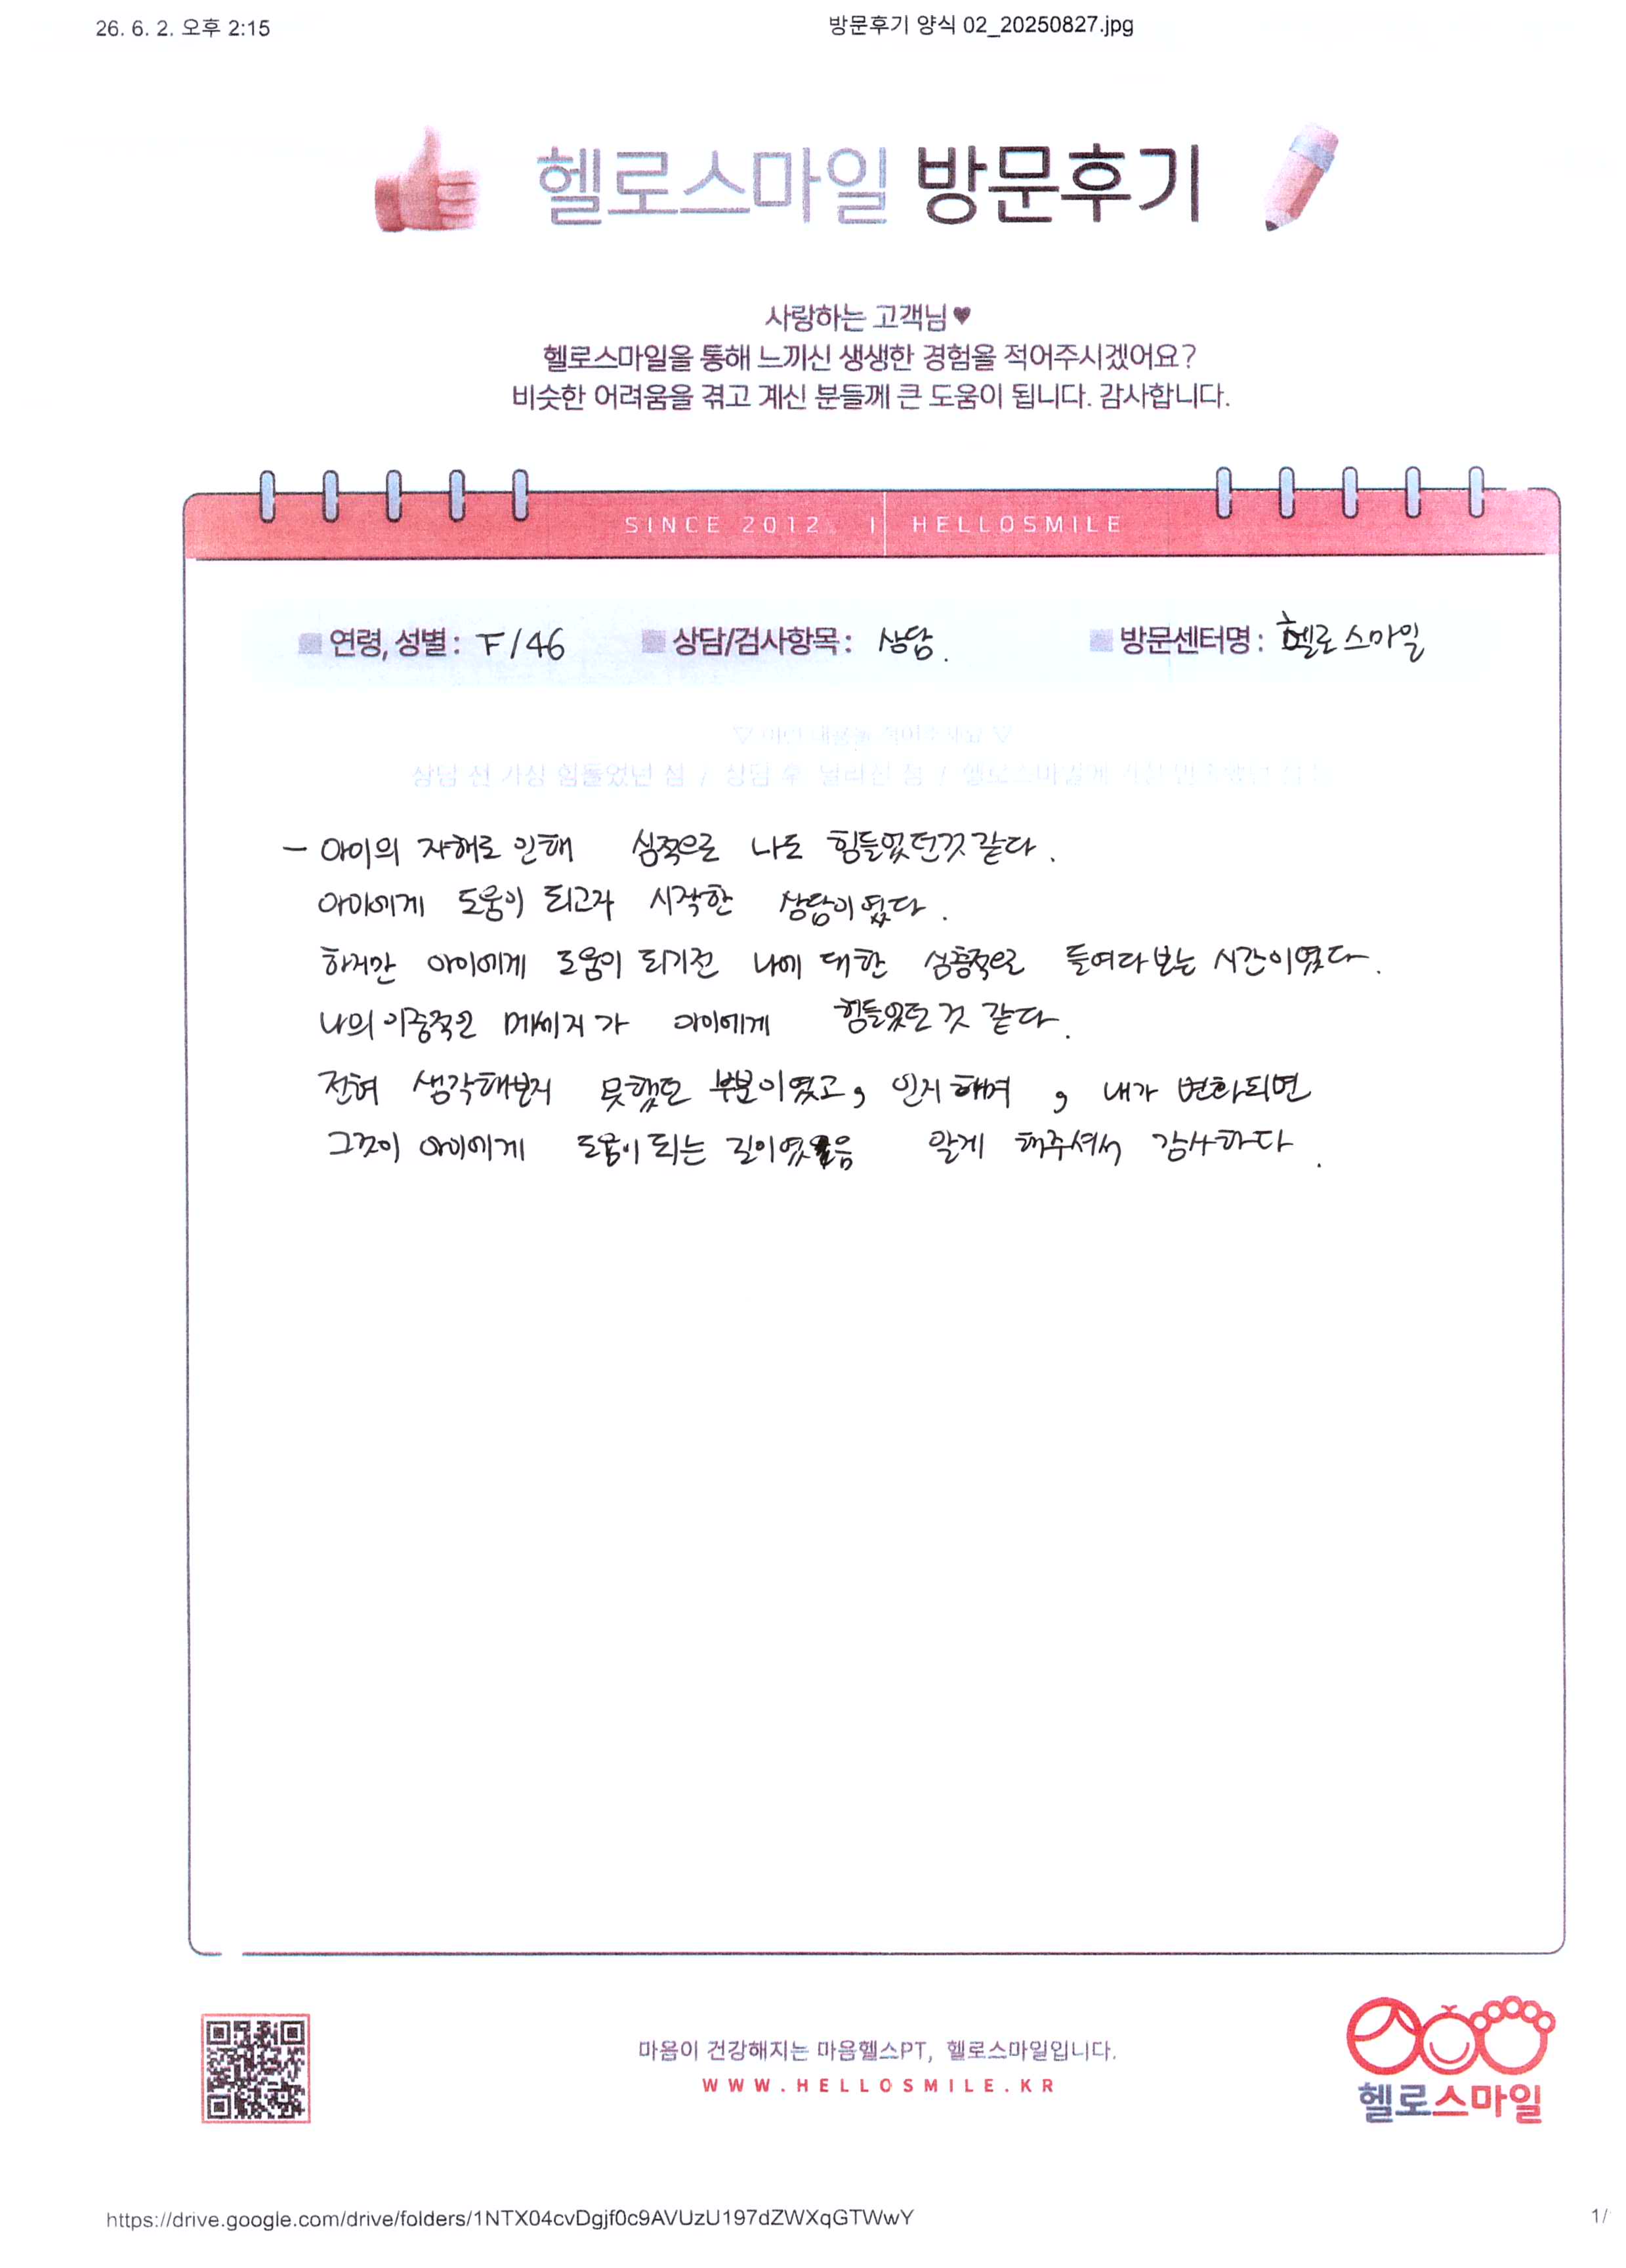 26. 6. 2. 오후 2:15 방문후기 양식 02_20250827.jpg
헬로스마일 방문후기
사랑하는 고객님♥
헬로스마일을 통해 느끼신 생생한 경험을 적어주시겠어요?
비슷한 어려움을 겪고 계신 분들께 큰 도움이 됩니다. 감사합니다.
SINCE 2012. | HELLOSMILE
연령, 성별 : F/46 상담/검사항목 : 상담. 방문센터명 : 헬로스마일
상담 전 가장 힘들었던 점 / 상담 후 달라진 점 / 헬로스마일에 가장
- 아이의 자해로 인해 심적으로 나도 힘들었던것 같다.
아이에게 도움이 되고자 시작한 상담이였다.
하지만 아이에게 도움이 되기전 나에 대한 심층적으로 들여다보는 시간이였다.
나의 이중적인 메세지가 아이에게 힘들었던 것 같다.
전혀 생각해보지 못했던 부분이였고, 인지해며, 내가 변화되면
그것이 아이에게 도움이 되는 길이였음 알게 해주셔서 감사하다.
마음이 건강해지는 마음헬스PT, 헬로스마일입니다.
WWW.HELLOSMILE.KR
헬로스마일
https://drive.google.com/drive/folders/1NTX04cvDgjf0c9AVUzU197dZWXqGTWwY 1/